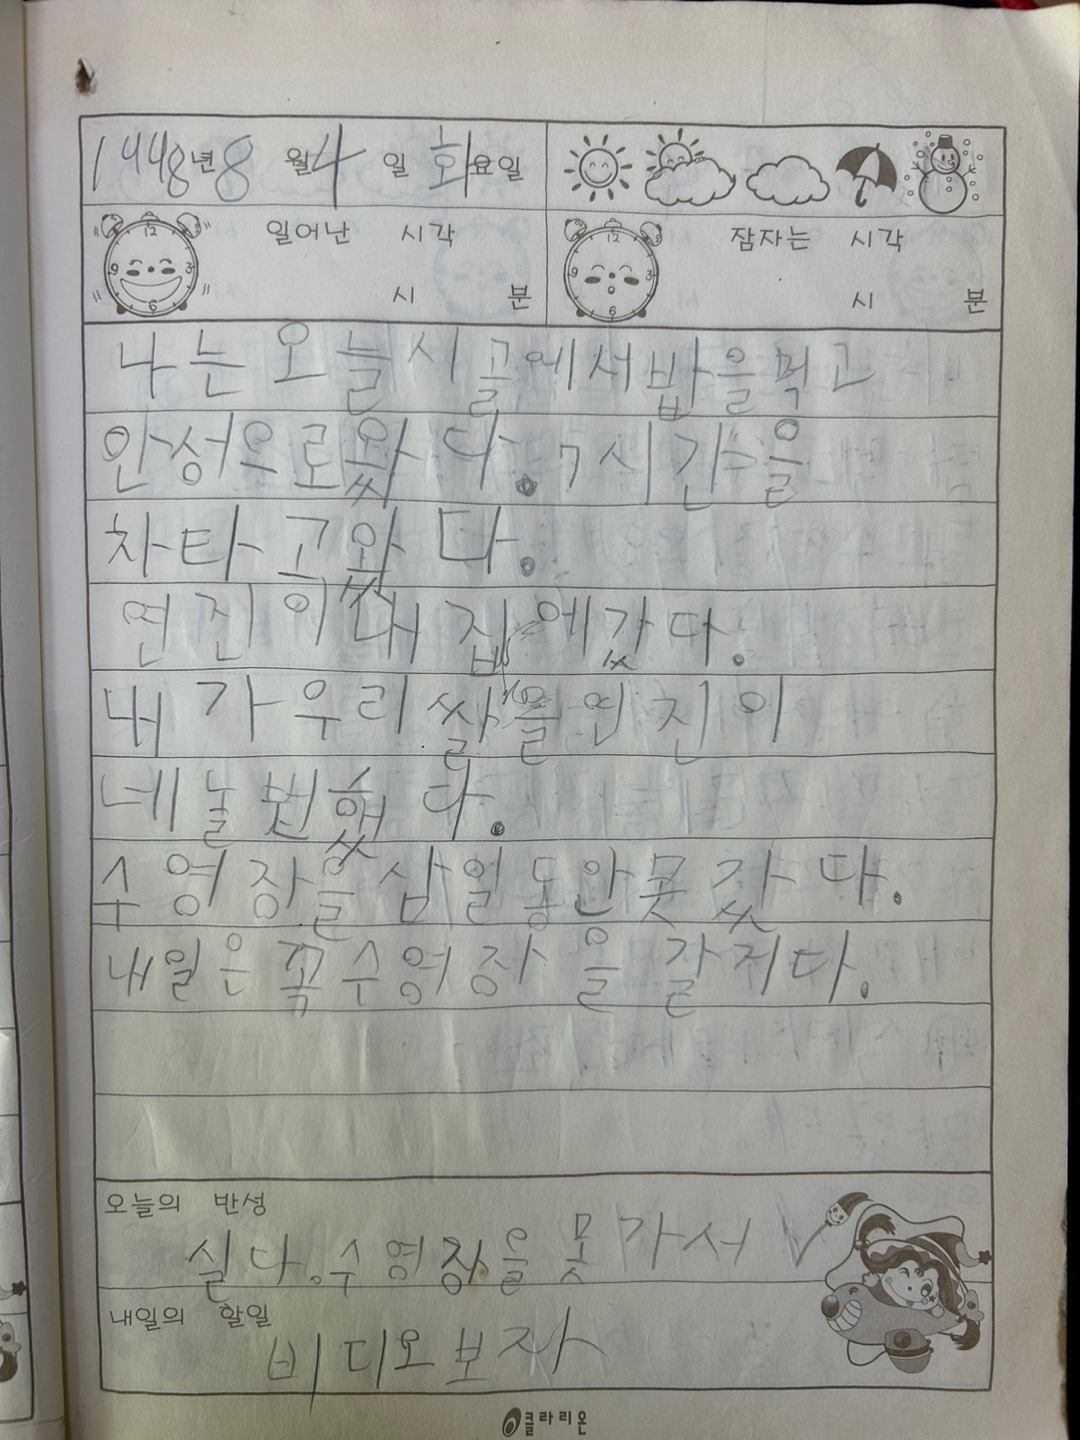 1998년 8월 4일 화요일
일어난 시각
시 분
잠자는 시각
시 분
나는 오늘 시골에서 밥을 먹고
안성으로 왔다. 7시간을
차타고 왔다.
연진이내 집에 갔다.
내가 우리 쌀을 연진이
네 눌번했다.
수영장을 삼일 동안 못 갔다.
내일은 꼭 수영장을 갈 저다.
오늘의 반성
실다. 수영장을 못 가서
내일의 할일
비디오 보자
클라리온